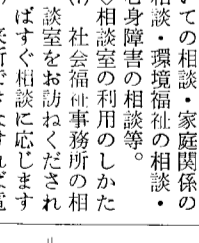 いての相談・家庭関係の
相談・環境福祉の相談・
心身障害の相談等。
◇相談室の利用のしかた
社会福祉事務所の相
談室をお訪ねくだされ
ばすぐ相談に応じます